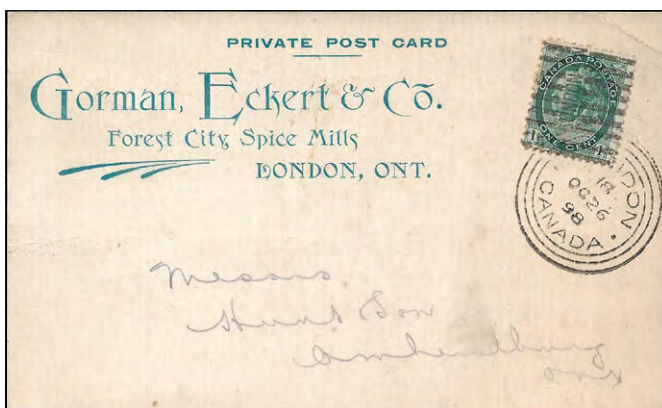 PRIVATE POST CARD
Gorman, Eckert & Co.
Forest City Spice Mills
LONDON, ONT.
CANADA POSTAGE
ONE CENT
LONDON
18
OC 26
98
CANADA
Messrs
Hunt Son
Amherstburg
Ont